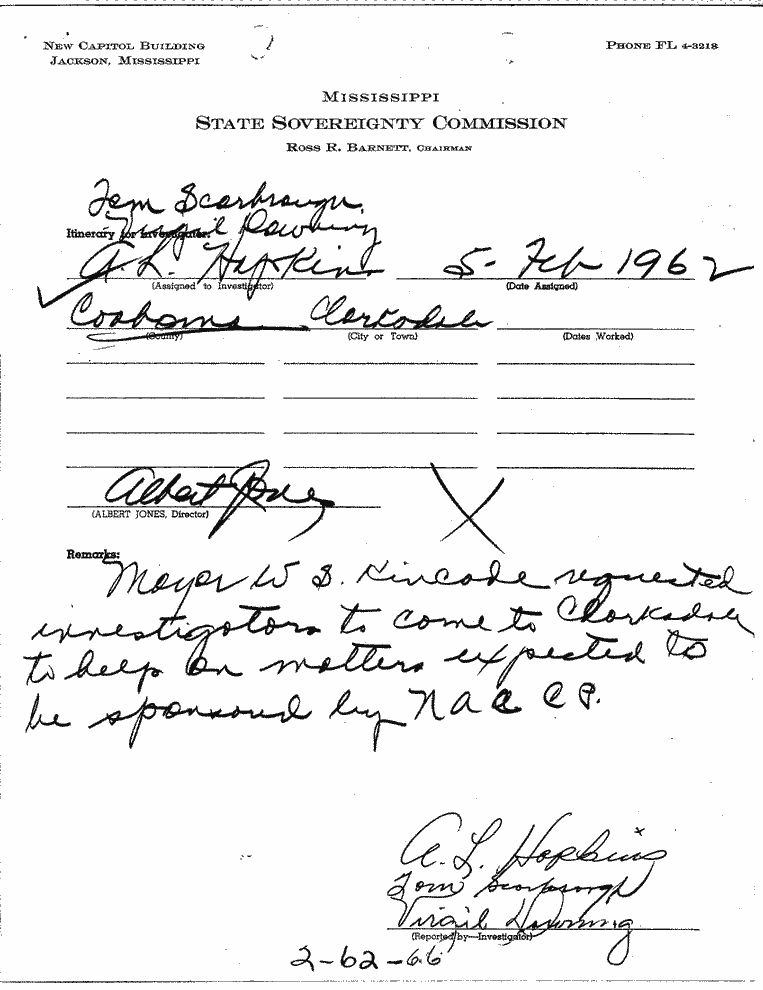 NEW CAPITOL BUILDING
JACKSON, MISSISSIPPI
PHONE FL 4-3218
MISSISSIPPI
STATE SOVEREIGNTY COMMISSION
ROSS R. BARNETT, CHAIRMAN
Tom Scarbrough,
Virgil Downing
Itinerary for Investigator:
A. L. Hopkins 5- Feb 1962
(Assigned to Investigator) (Date Assigned)
Coahoma Clarksdale
(County) (City or Town) (Dates Worked)
Albert Jones
(ALBERT JONES, Director)
Remarks:
Mayor W S. Kincade requested
investigators to come to Clarksdale
to help on matters expected to
be sponsored by NAACP.
A. L. Hopkins
Tom Scarbrough
Virgil Downing
(Reported by—Investigator)
2-62-66